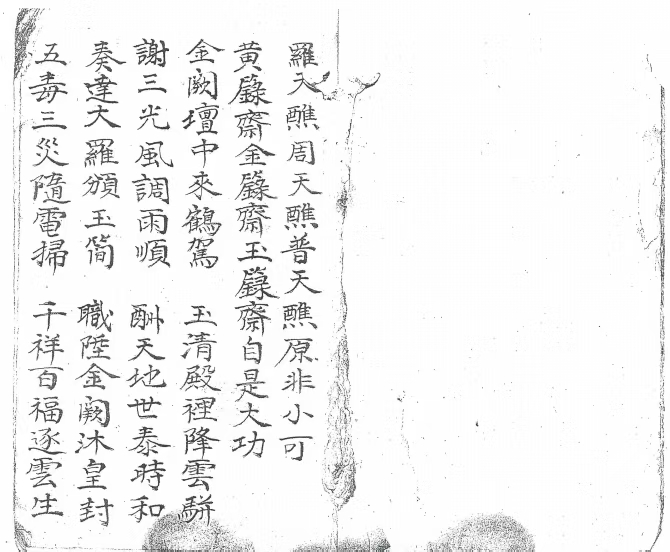 羅天醮周天醮普天醮原非小可
黄籙齋金籙齋玉籙齋自是大功
金闕壇中來鶴駕　玉清殿裡降雲駢
謝三光風調雨順　酬天地世泰時和
奏達大羅頒玉简　職陞金闕沐皇封
五毒三災隨電掃　千祥百福逐雲生